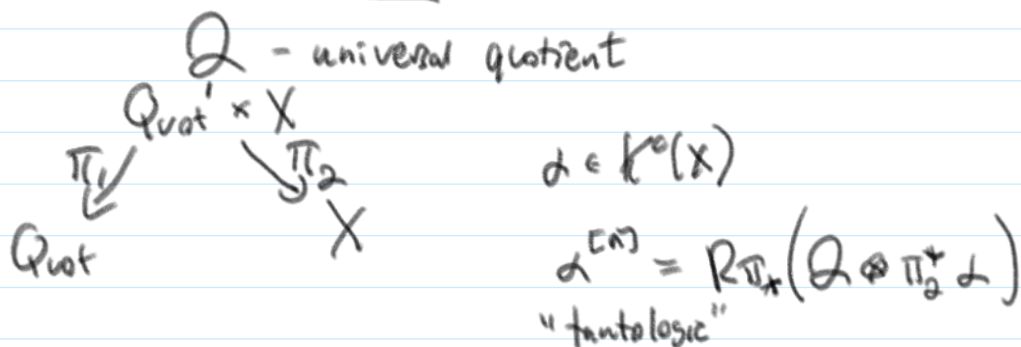 Q - universal quotient
Quot × X
π₁ π₂ α ∈ K⁰(X)
Quot X α^[n] = Rπ_*(Q ⊗ π₂^* α)
"tautologic"